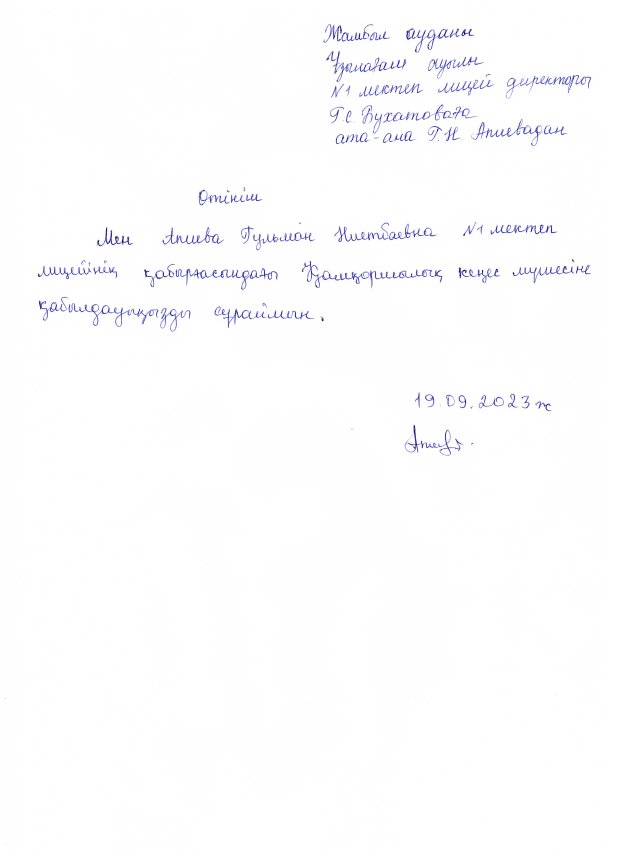 Жамбыл ауданы
Ұзынағаш ауылы
N1 мектеп лицей директоры
Г.С. Бухатоваға
ата-ана Г.Н. Апиевадан
Өтініш
Мен Апиева Гульман Ниетбаевна N1 мектеп
лицейінің қабырғасындағы Қамқоршылық кеңес мүшесіне
қабылдауыңызды сұраймын.
19.09.2023 ж